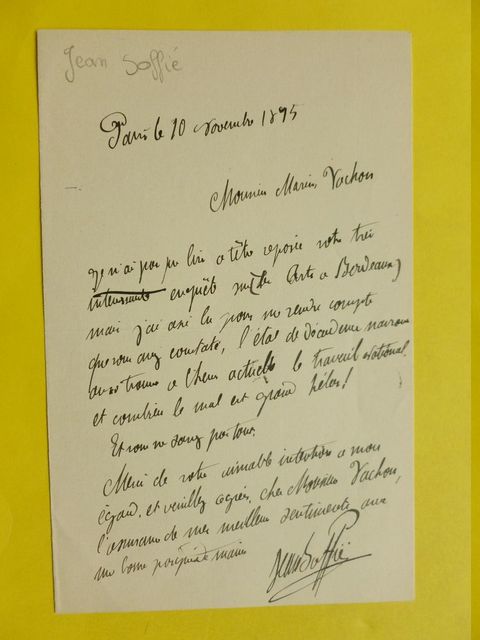 Jean Soffié
Paris le 10 novembre 1895
Monsieur Marius Vachon
Je n'ai pas pu lire a tête reposée votre très
interessante enquête sur (les Arts a Bordeaux)
mais j'ai assé lu pour me rendre compte
que vous avez constaté, l'état de décadence navrant
ou se trouve a l'heure actuelle le travail national
et combien le mal est grand hélas!
Et vous ne savez pas tout.
Merci de votre aimable intention a mon
égard, et veuillez agréer, cher Monsieur Vachon,
l'assurance de mes meilleurs sentiments avec
une bonne poignée de main
Jean Soffié